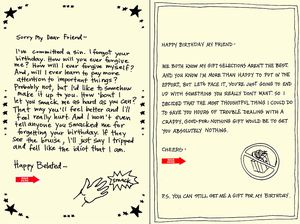 Sorry My Dear Friend-
I've committed a sin. I forgot your
birthday. How will you ever forgive
me? How will I ever forgive myself?
And, will I ever learn to pay more
attention to important things?
Probably not, but I'd like to somehow
make it up to you. How 'bout I
let you smack me as hard as you can?
That way you'll feel better and I'll
feel really hurt. And I won't even
tell anyone you smacked me for
forgetting your birthday. If they
see the bruise, I'll just say I tripped
and fell like the idiot that I am.
Happy Belated-
SMACK!
HAPPY BIRTHDAY MY FRIEND-
WE BOTH KNOW MY GIFT SELECTIONS AREN'T THE BEST
AND YOU KNOW I'M MORE THAN HAPPY TO PUT IN THE
EFFORT, BUT LET'S FACE IT, YOU'RE JUST GOING TO END
UP WITH SOMETHING YOU REALLY DON'T WANT. SO I
DECIDED THAT THE MOST THOUGHTFUL THING I COULD DO
TO SAVE YOU HOURS OF TROUBLE DEALING WITH A
CRAPPY, GOOD-FOR-NOTHING GIFT WOULD BE TO GET
YOU ABSOLUTELY NOTHING.
CHEERS-
P.S. YOU CAN STILL GET ME A GIFT FOR MY BIRTHDAY.